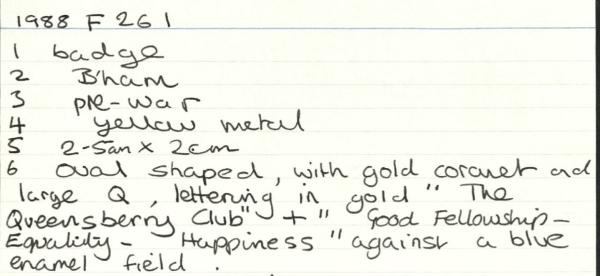 1988 F 261
1 badge
2 B'ham
3 pre-war
4 yellow metal
5 2-5cm x 2cm
6 oval shaped, with gold coronet and
large Q, lettering in gold "The
Queensberry Club" + "Good Fellowship-
Equality- Happiness" against a blue
enamel field.